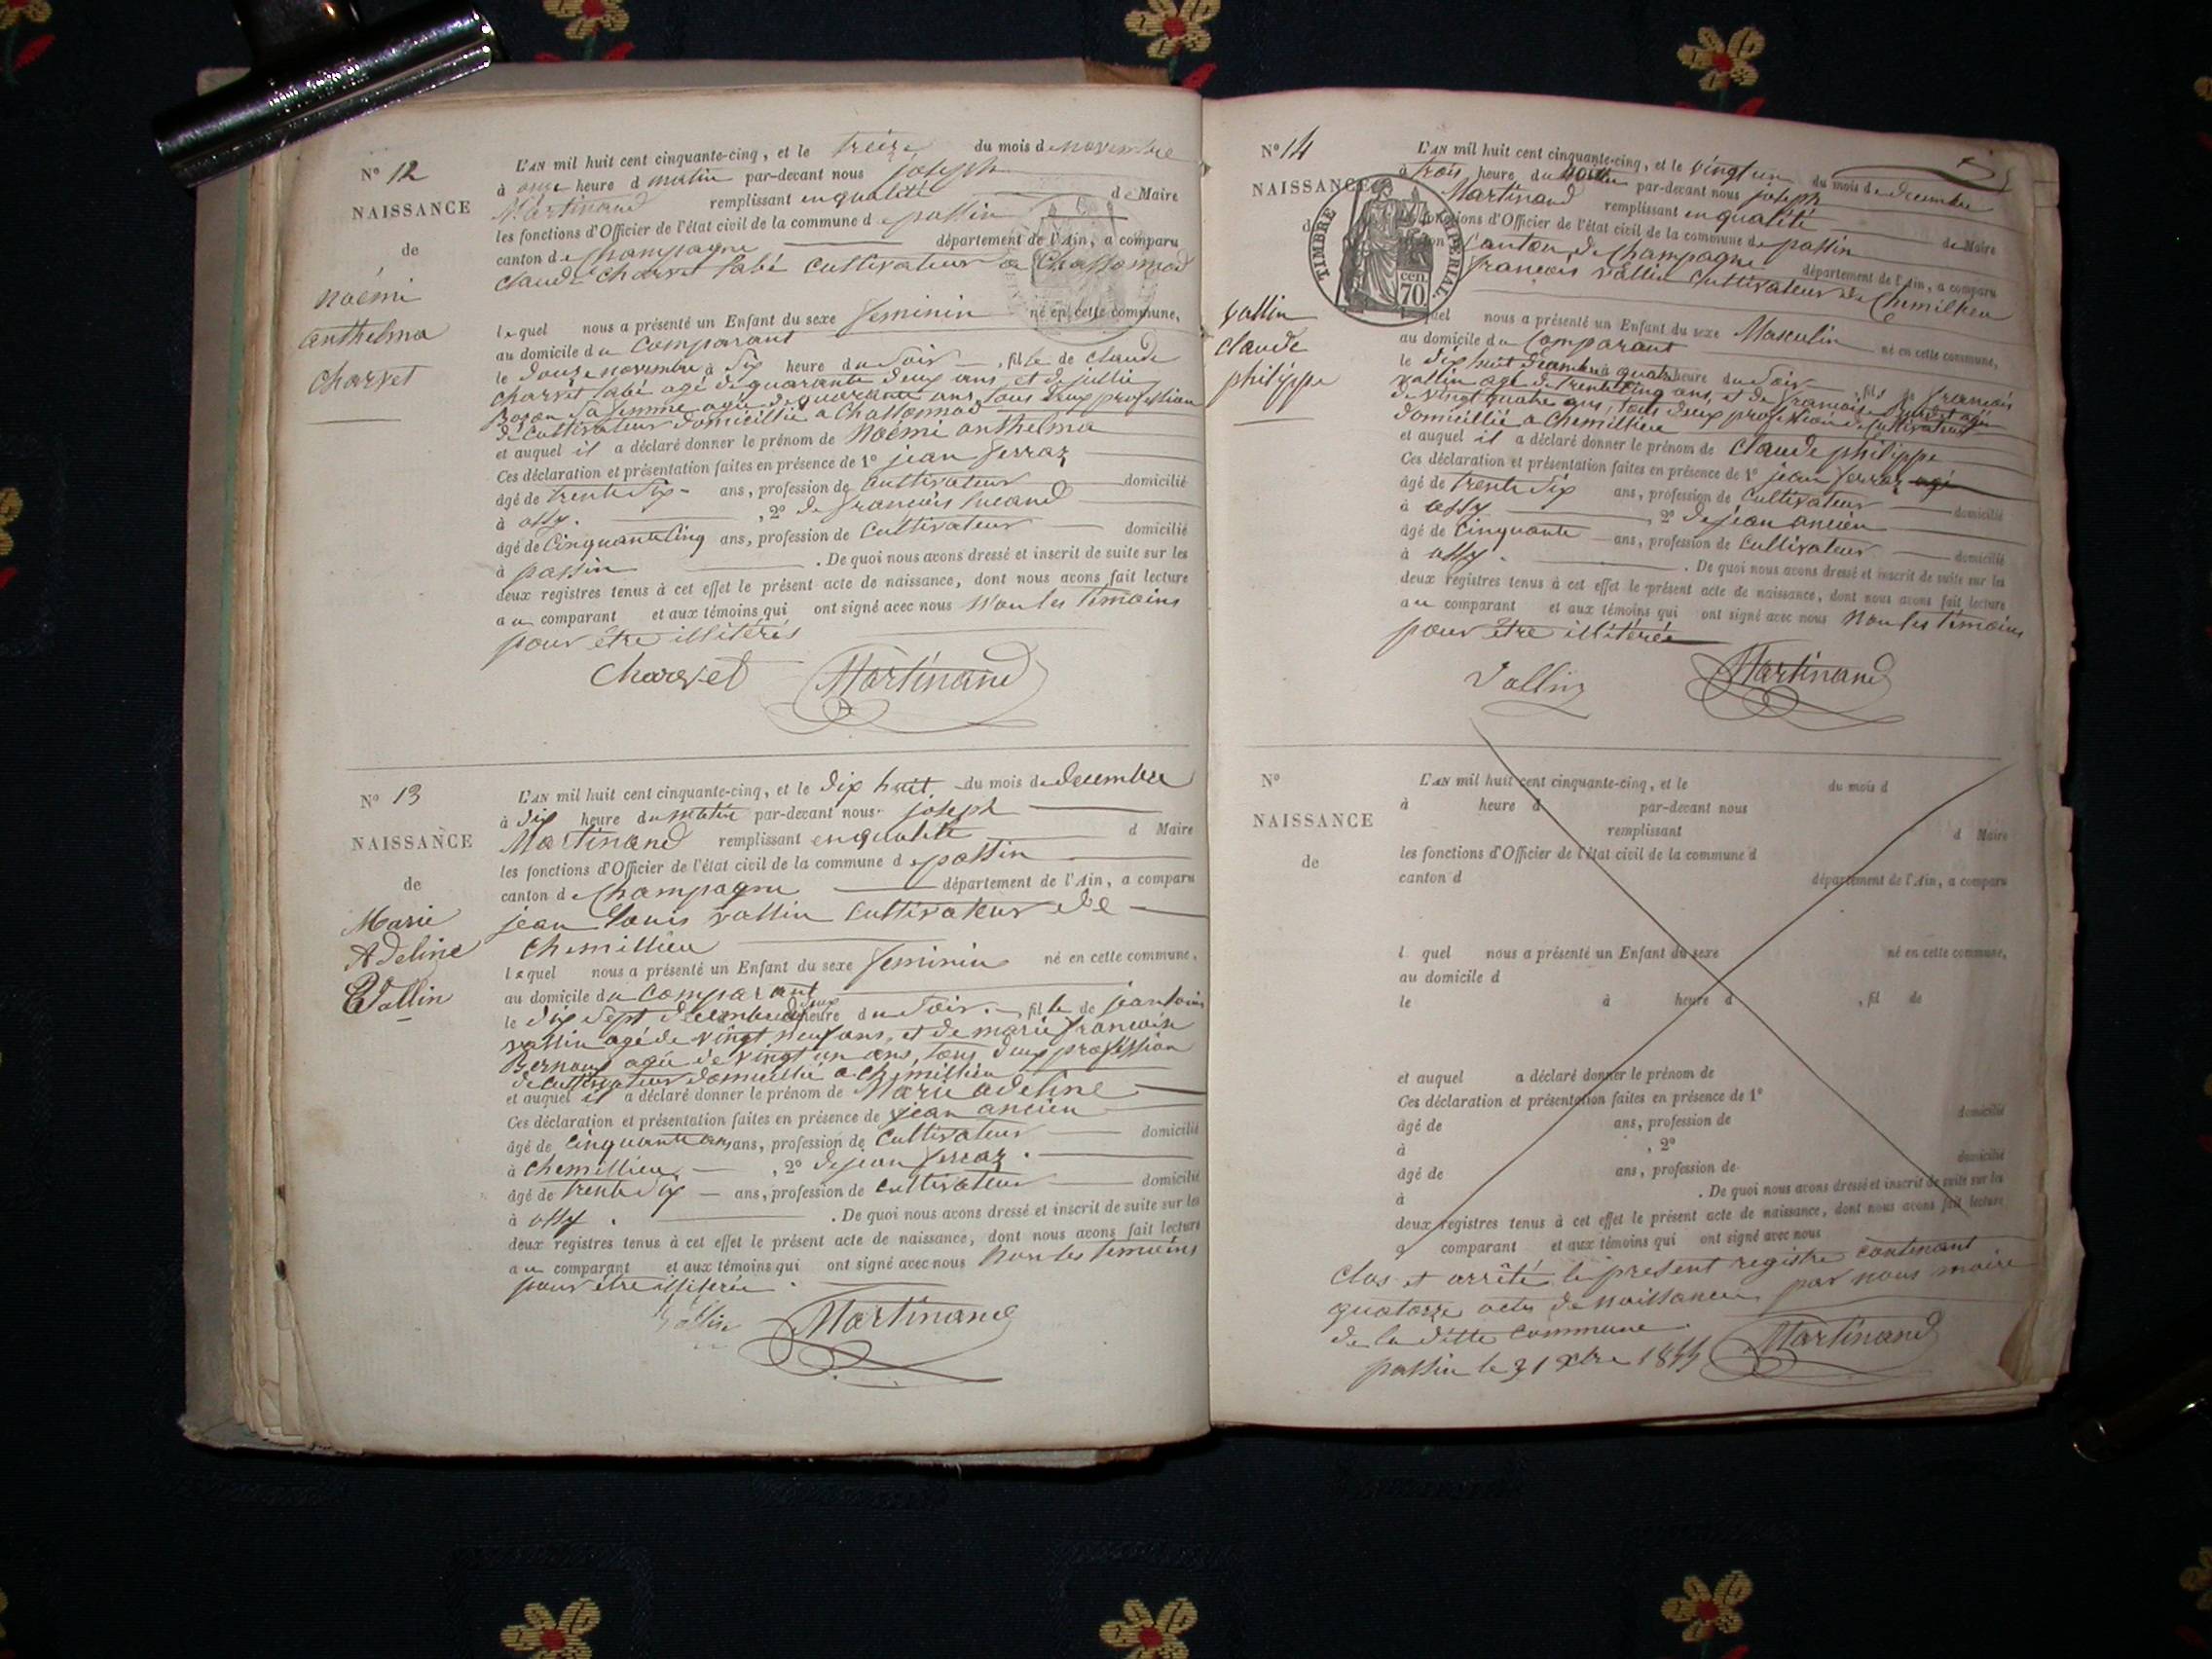 N° 12
NAISSANCE
de
Noémi
anthelma
Charvet
L'AN mil huit cent cinquante-cinq, et le treize du mois de novembre
à onze heure d matin par-devant nous joseph
Martinand remplissant en qualité de Maire
les fonctions d'Officier de l'état civil de la commune de passin
canton de Champagne département de l'Ain, a comparu
Claude Charvet labé Cultivateur a Chassonnod
lequel nous a présenté un Enfant du sexe feminin né en cette commune,
au domicile du Comparant
le douze novembre à six heure du soir, fille de Claude
charvet labé agé de quarante deux ans et de jullie
sa femme agée de quarante ans, tous deux profession
de cultivateur domicillié a Chassonnod
et auquel il a déclaré donner le prénom de Noémi anthelma
Ces déclaration et présentation faites en présence de 1° jean ferraz
âgé de trente six ans, profession de Cultivateur domicilié
à assy. , 2° de francois
âgé de Cinquante cinq ans, profession de Cultivateur domicilié
à passin . De quoi nous avons dressé et inscrit de suite sur les
deux registres tenus à cet effet le présent acte de naissance, dont nous avons fait lecture
au comparant et aux témoins qui ont signé avec nous Non les témoins
pour être illitérés
Charvet Martinand
N° 13
NAISSANCE
de
Marie
Adeline
Vallin
L'AN mil huit cent cinquante-cinq, et le dix huit du mois de decembre
à dix heure du matin par-devant nous joseph
Martinand remplissant en qualité d Maire
les fonctions d'Officier de l'état civil de la commune de passin
canton de Champagne département de l'Ain, a comparu
jean louis vallin Cultivateur de
Chemillieu
lequel nous a présenté un Enfant du sexe feminin né en cette commune,
au domicile du Comparant
le dix sept decembre à deux heure du soir, fille de jean louis
vallin agé de vingt neuf ans, et de marie francoise
Bernoux agée de vingt un ans, tous deux profession
de cultivateur domicillié a Chemillieu
et auquel il a déclaré donner le prénom de Marie adeline
Ces déclaration et présentation faites en présence de jean ancien
âgé de Cinquante ans, profession de Cultivateur domicilié
à Chemillieu , 2° de jean ferraz.
âgé de trente six ans, profession de Cultivateur domicilié
à assy. . De quoi nous avons dressé et inscrit de suite sur les
deux registres tenus à cet effet le présent acte de naissance, dont nous avons fait lecture
au comparant et aux témoins qui ont signé avec nous Non les temoins
pour être illiterée
Vallin Martinand
N° 14
NAISSANCE
d
vallin
Claude
philippe
TIMBRE IMPERIAL
cen
70
L'AN mil huit cent cinquante-cinq, et le vingt un du mois de decembre
à trois heure du par-devant nous joseph
Martinand remplissant en qualité de Maire
les fonctions d'Officier de l'état civil de la commune de passin
canton Canton de Champagne département de l'Ain, a comparu
francois vallin Cultivateur de Chemillieu
lequel nous a présenté un Enfant du sexe Masculin né en cette commune,
au domicile du Comparant
le dix huit decembre à quatre heure du soir, fils de francois
vallin agé de trente cinq ans, et de francoise agée
de vingt quatre ans, tous deux profession de Cultivateur
domicillié a Chemillieu
et auquel il a déclaré donner le prénom de Claude philippe
Ces déclaration et présentation faites en présence de 1° jean ferraz agé
âgé de trente six ans, profession de Cultivateur domicilié
à assy , 2° de jean ancien
âgé de Cinquante ans, profession de Cultivateur domicilié
à assy. . De quoi nous avons dressé et inscrit de suite sur les
deux registres tenus à cet effet le présent acte de naissance, dont nous avons fait lecture
au comparant et aux témoins qui ont signé avec nous Non les témoins
pour être illitérée
Vallin Martinand
N°
NAISSANCE
de
L'AN mil huit cent cinquante-cinq, et le du mois d
à heure d par-devant nous
remplissant d Maire
les fonctions d'Officier de l'état civil de la commune d
canton d département de l'Ain, a comparu
l quel nous a présenté un Enfant du sexe né en cette commune,
au domicile d
le à heure d , fil de
et auquel a déclaré donner le prénom de
Ces déclaration et présentation faites en présence de 1°
âgé de ans, profession de domicilié
à , 2°
âgé de ans, profession de domicilié
à . De quoi nous avons dressé et inscrit de suite sur les
deux registres tenus à cet effet le présent acte de naissance, dont nous avons fait lecture
a comparant et aux témoins qui ont signé avec nous
Clos et arrêté le present registre contenant
quatorze actes de naissances par nous maire
de la ditte Commune.
passin le 31 xbre 1855 Martinand